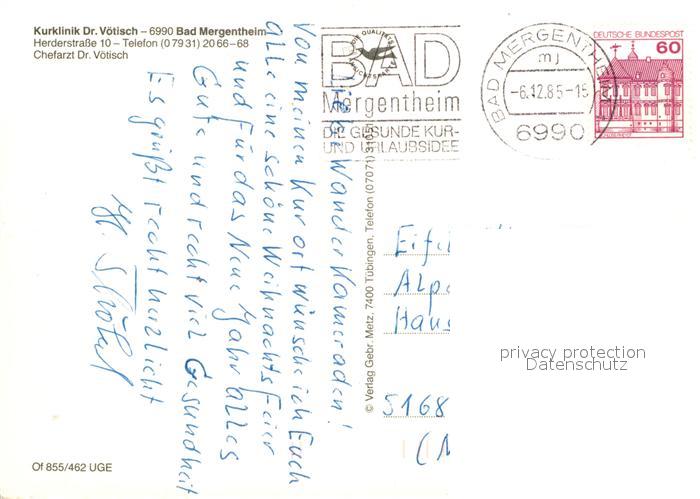 Kurklinik Dr. Vötisch – 6990 Bad Mergentheim
Herderstraße 10 – Telefon (0 79 31) 20 66–68
Chefarzt Dr. Vötisch
Liebe Wanderkameraden!
Von meinen Kurort wünsche ich Euch
alle eine schöne Weihnachtsfeier
und für das Neue Jahr alles
Gute und recht viel Gesundheit
Es grüßt recht herzlicht
Of 855/462 UGE
© Verlag Gebr. Metz, 7400 Tübingen, Telefon (07071)
BAD
Mergentheim
DIE GESUNDE KUR-
UND URLAUBSIDEE
BAD MERGENTHEIM
mj
-6.12.85-15
6990
DEUTSCHE BUNDESPOST
60
Eife
Alpe
Haus
5168
privacy protection
Datenschutz